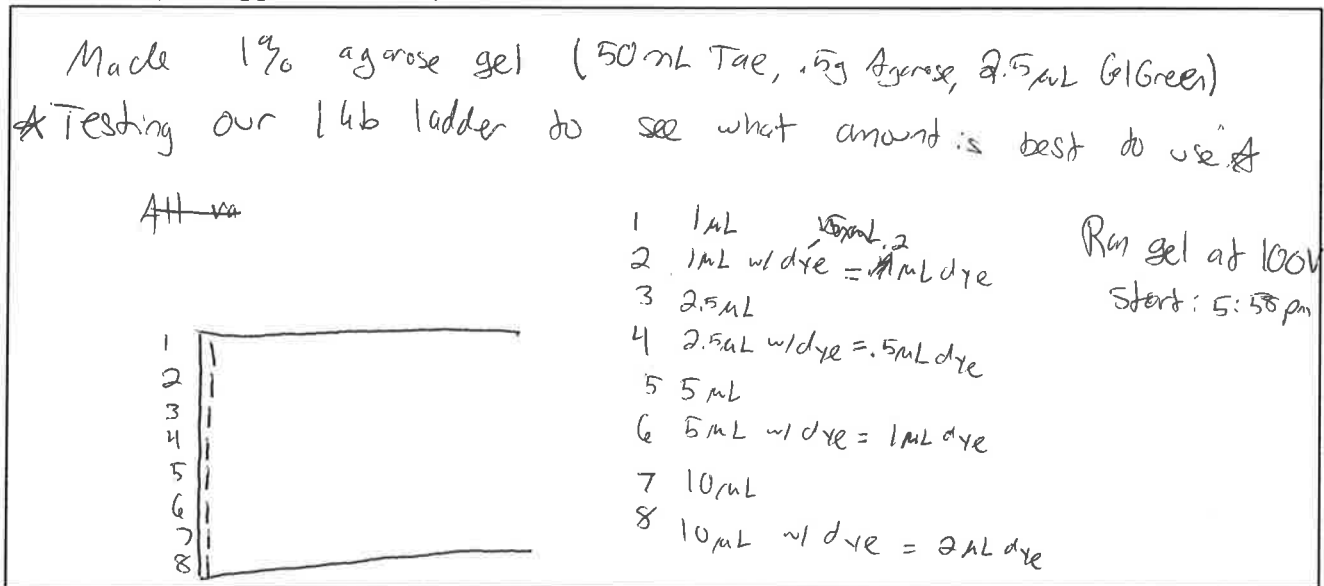 Made 1% agarose gel (50 mL Tae, .5g Agarose, 2.5 µL GelGreen)
☆Testing our lab ladder to see what amount is best to use☆
1 1 µL
2 1 µL w/ dye = .2 µL dye
3 2.5 µL
4 2.5 µL w/ dye = .5 µL dye
5 5 µL
6 5 µL w/ dye = 1 µL dye
7 10 µL
8 10 µL w/ dye = 2 µL dye
Ran gel at 100V
Start: 5:58 pm
1
2
3
4
5
6
7
8